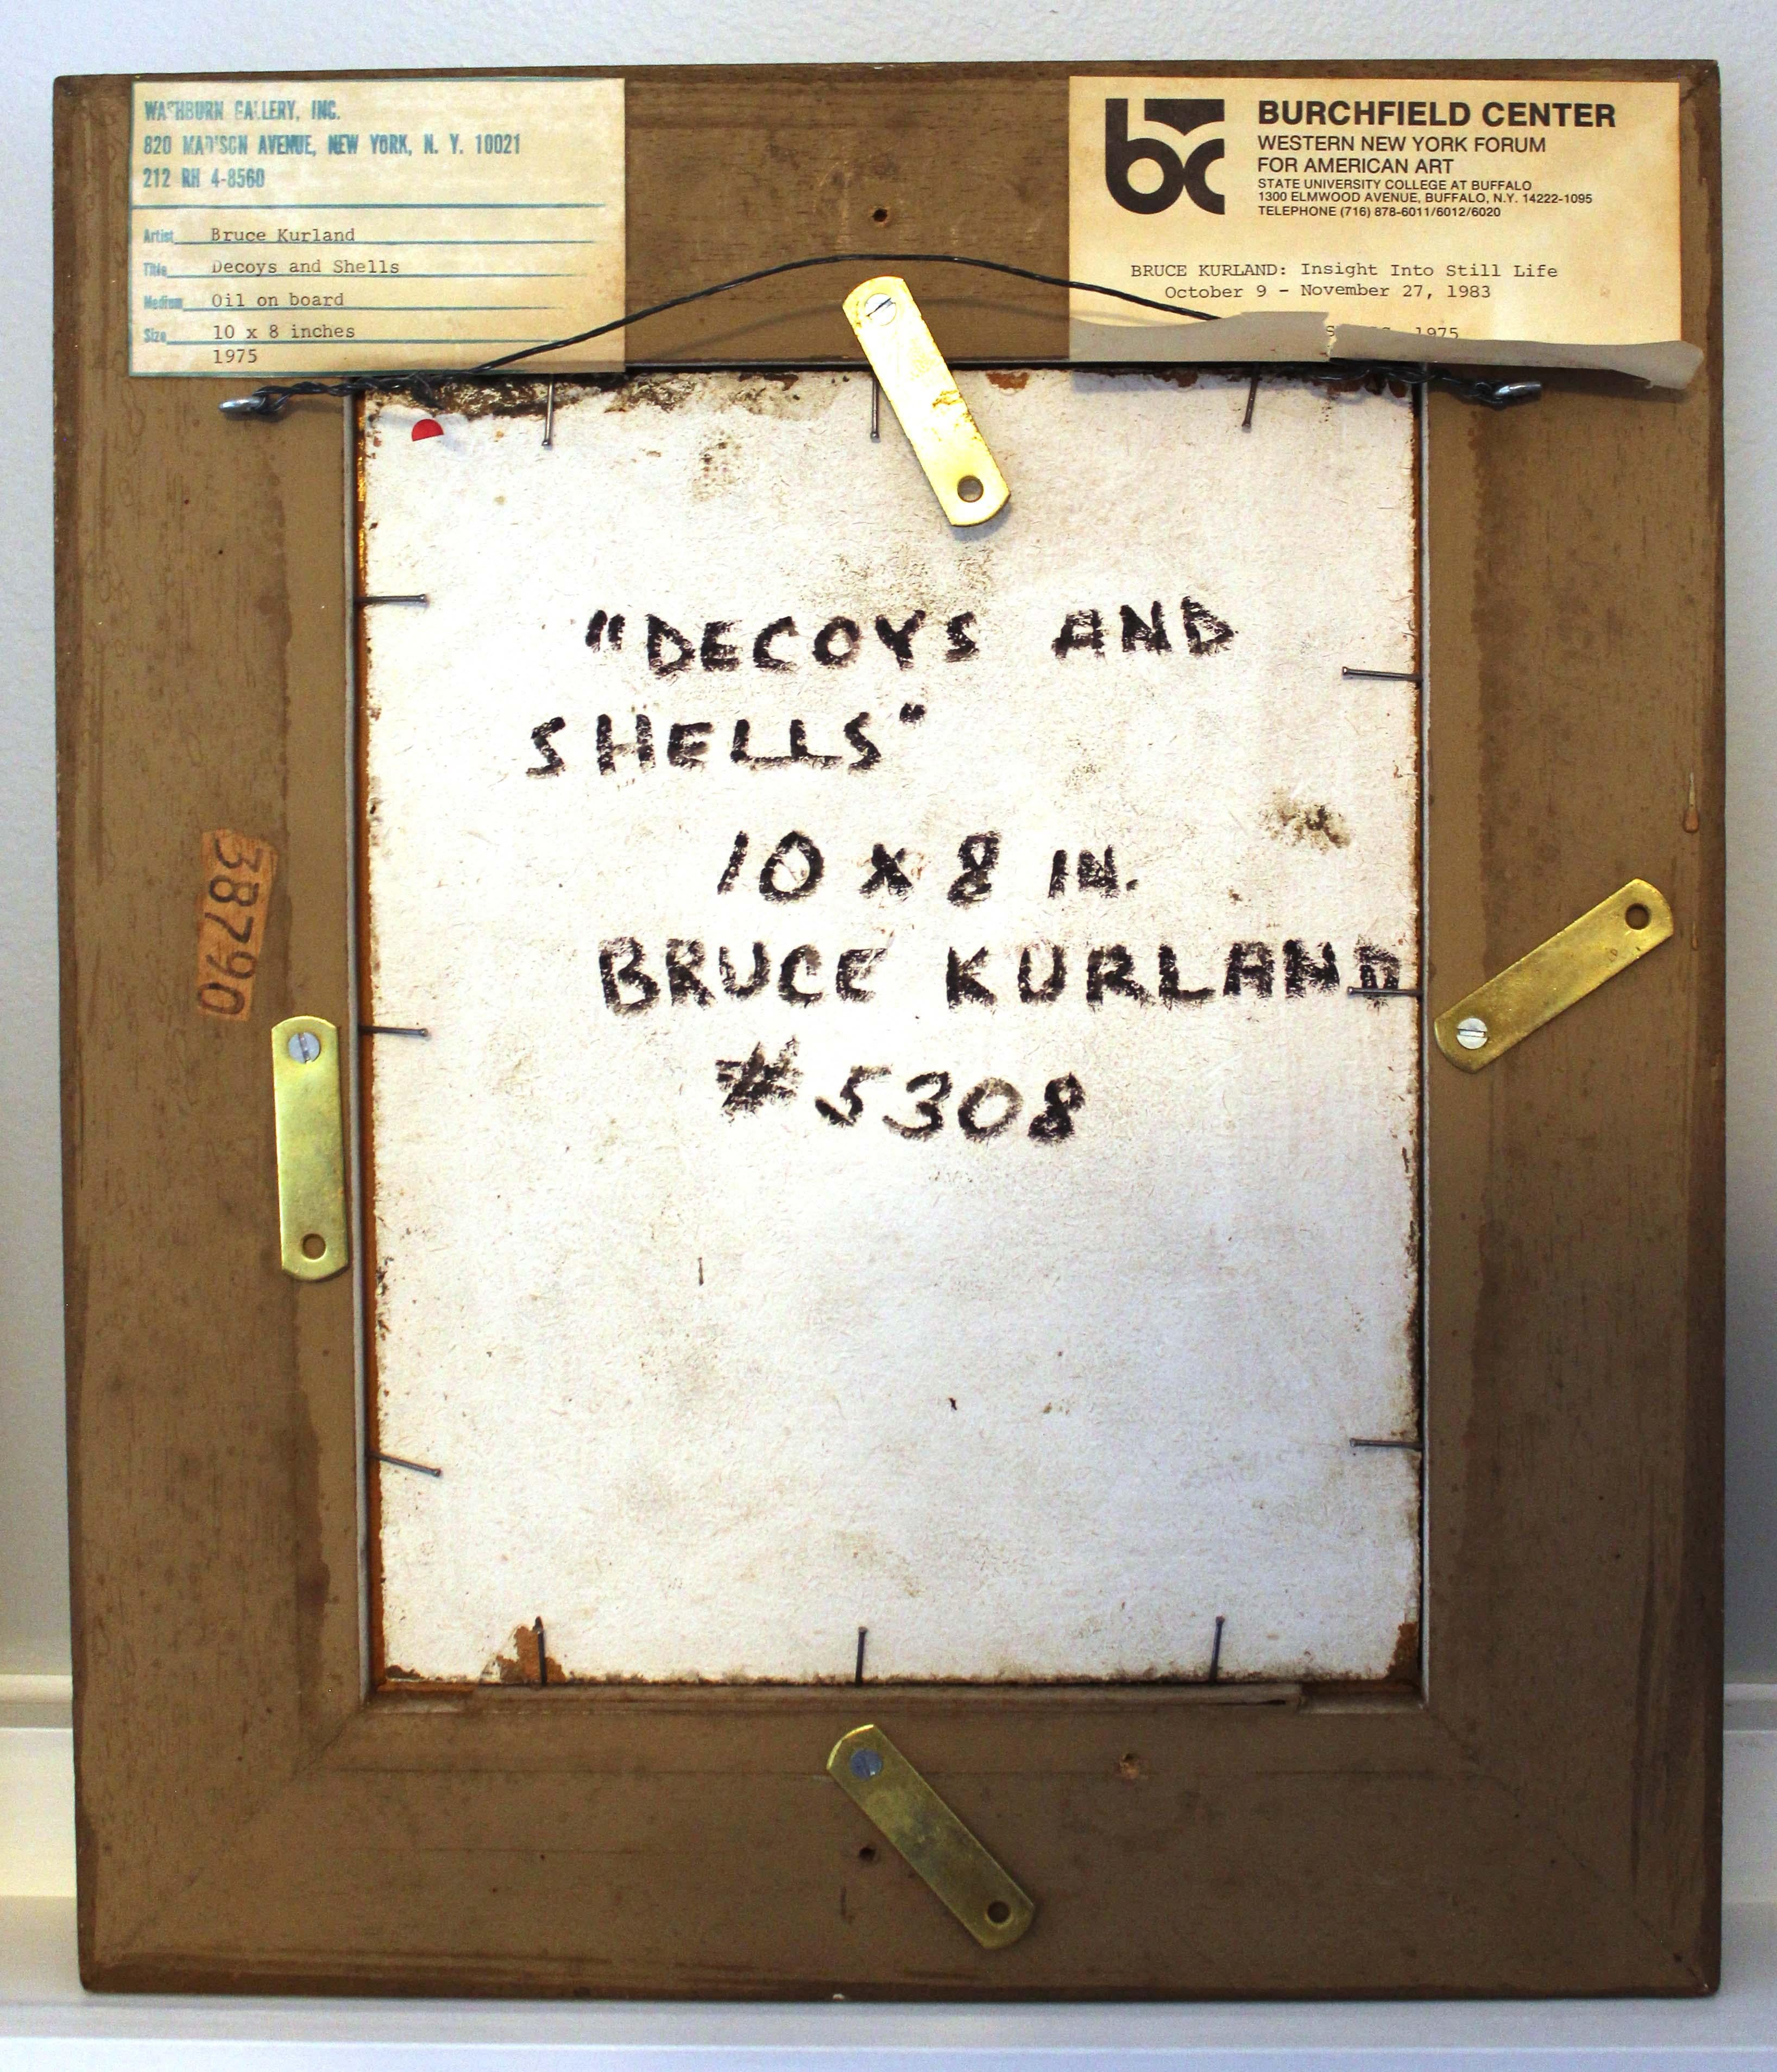 WASHBURN GALLERY, INC.
820 MADISON AVENUE, NEW YORK, N. Y. 10021
212 RH 4-8560
Artist Bruce Kurland
Title Decoys and Shells
Medium Oil on board
Size 10 x 8 inches
1975
bc
BURCHFIELD CENTER
WESTERN NEW YORK FORUM
FOR AMERICAN ART
STATE UNIVERSITY COLLEGE AT BUFFALO
1300 ELMWOOD AVENUE, BUFFALO, N.Y. 14222-1095
TELEPHONE (716) 878-6011/6012/6020
BRUCE KURLAND: Insight Into Still Life
October 9 - November 27, 1983
1975
"DECOYS AND
SHELLS"
10 x 8 IN.
BRUCE KURLAND
#5308
38790